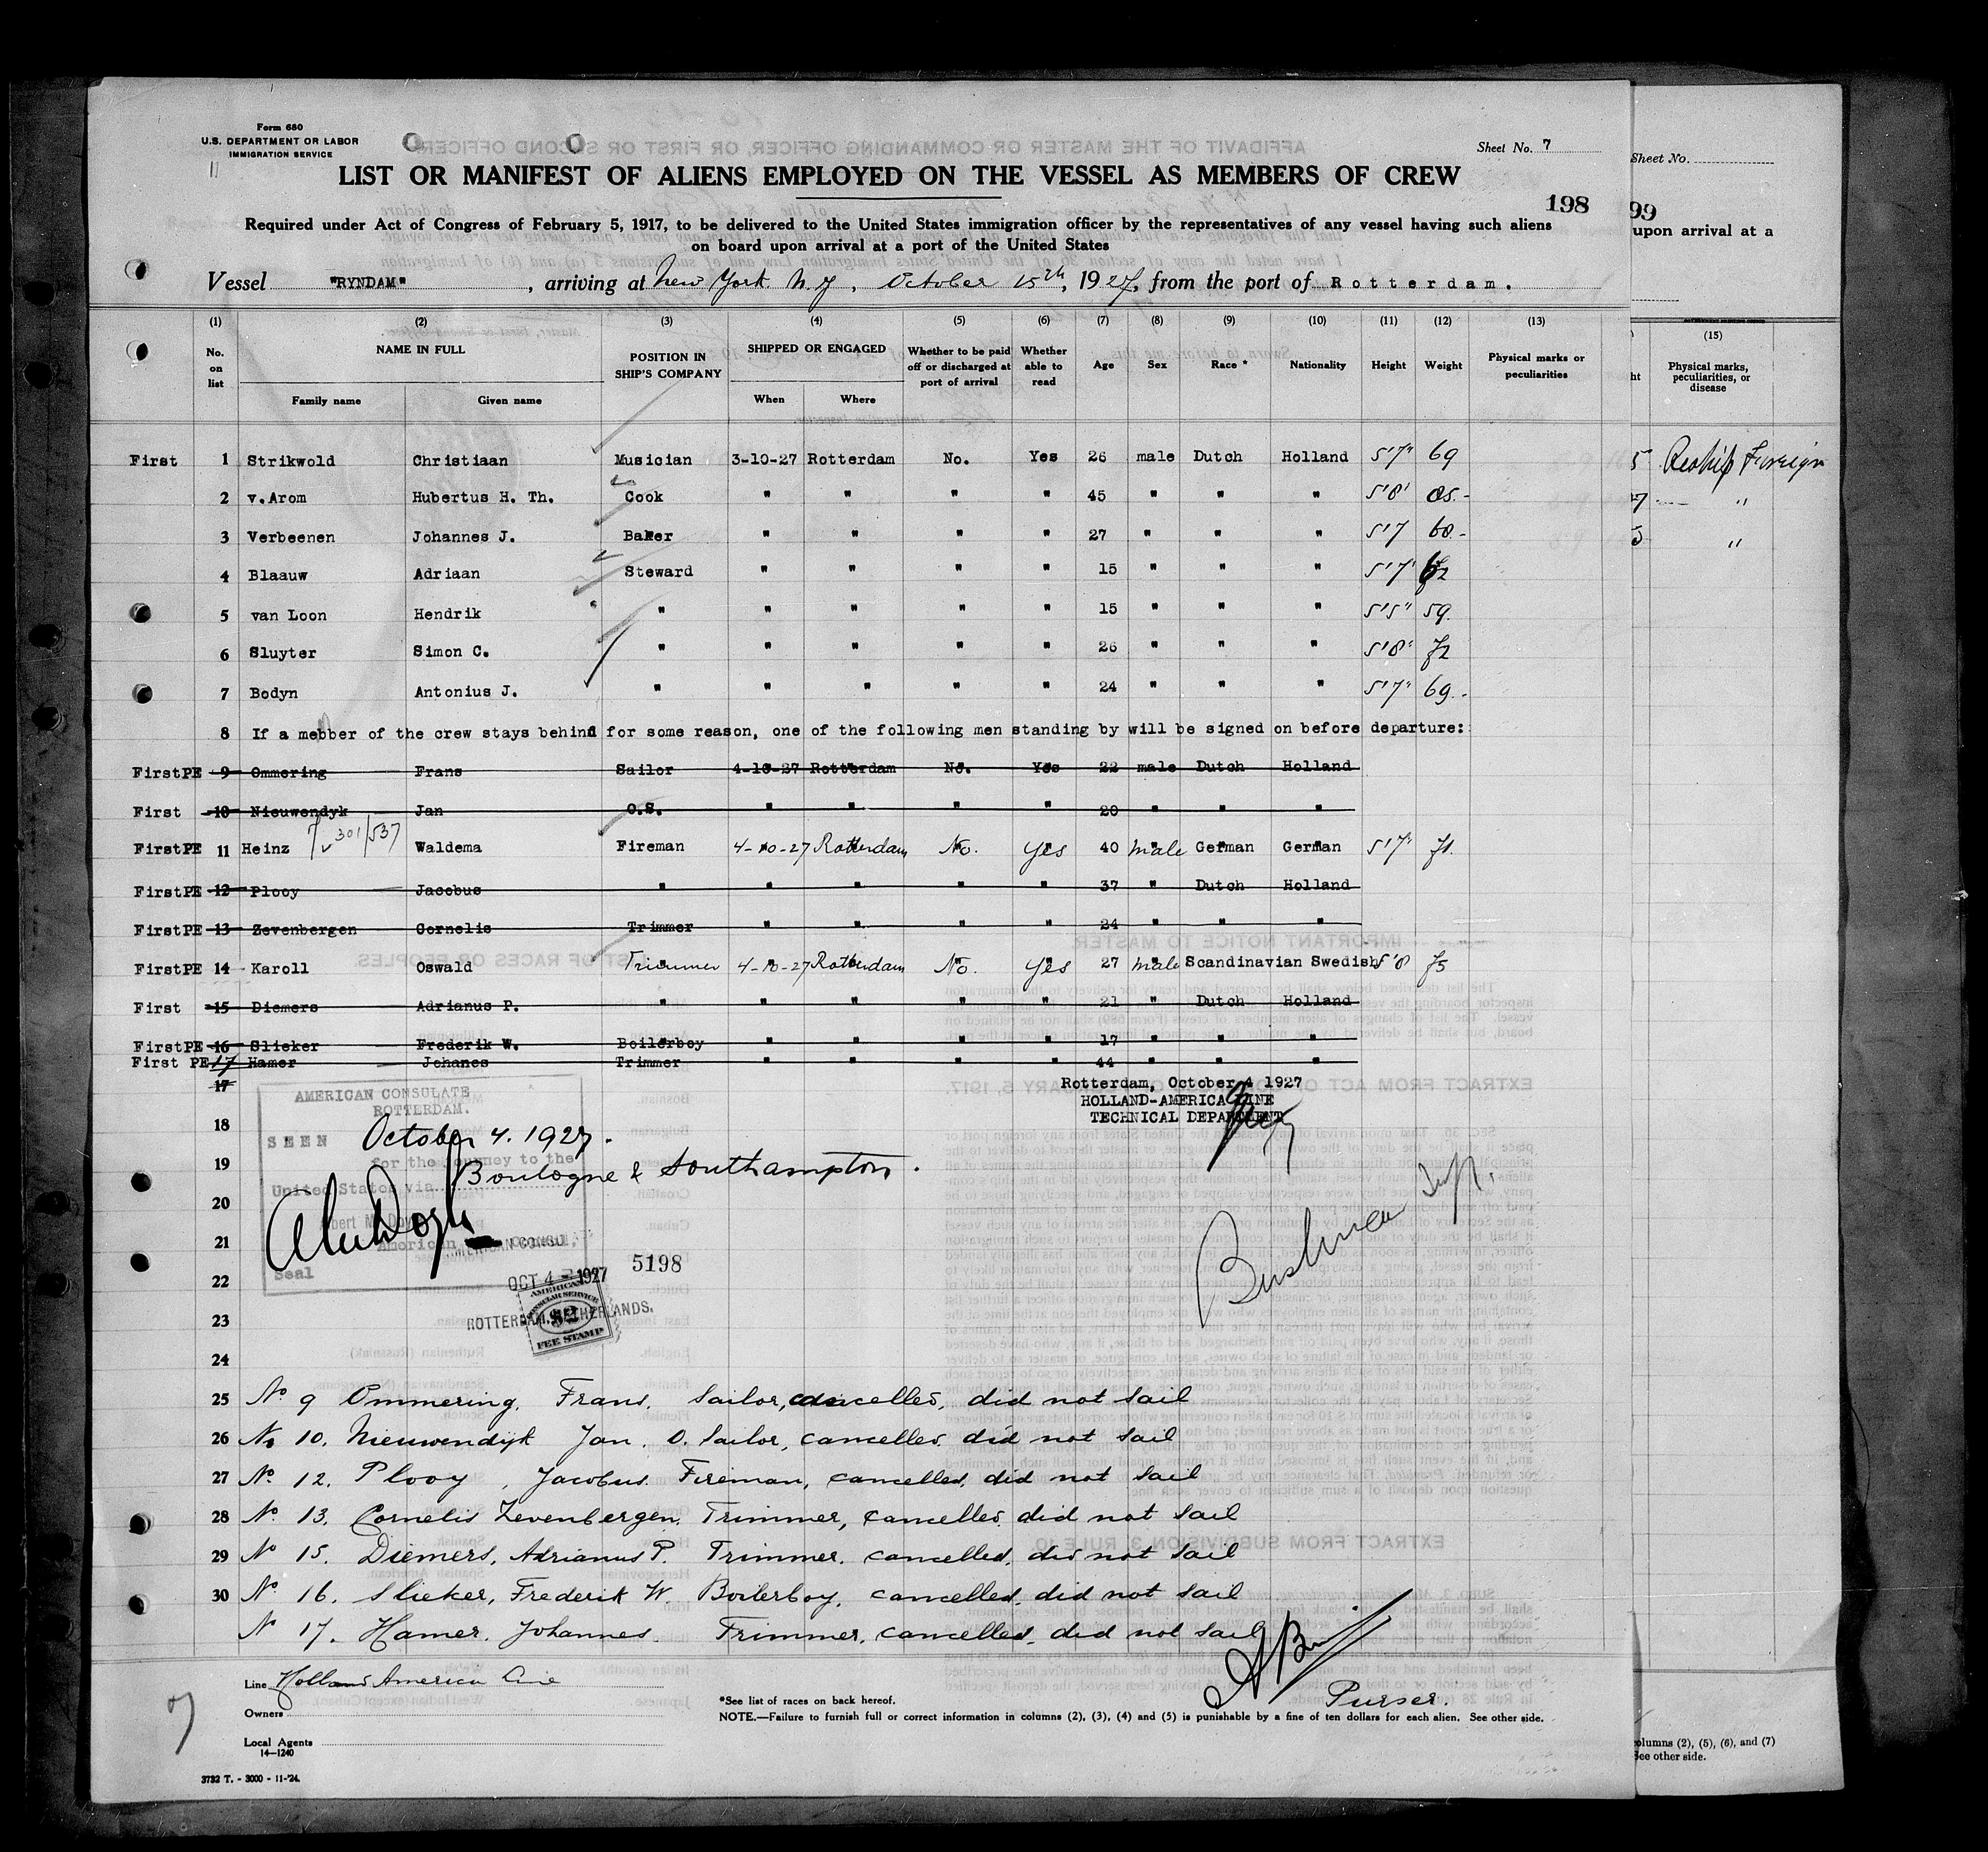 Form 680
U.S. DEPARTMENT OR LABOR
IMMIGRATION SERVICE
Sheet No. 7
LIST OR MANIFEST OF ALIENS EMPLOYED ON THE VESSEL AS MEMBERS OF CREW
198
Required under Act of Congress of February 5, 1917, to be delivered to the United States immigration officer by the representatives of any vessel having such aliens
on board upon arrival at a port of the United States
Vessel "RYNDAM", arriving at New York N.Y, October 15th, 1927, from the port of Rotterdam.
(1) (2) (3) (4) (5) (6) (7) (8) (9) (10) (11) (12) (13)
No. on list NAME IN FULL Family name Given name POSITION IN SHIP'S COMPANY SHIPPED OR ENGAGED When Where Whether to be paid off or discharged at port of arrival Whether able to read Age Sex Race * Nationality Height Weight Physical marks or peculiarities
First 1 Strikwold Christiaan Musician 3-10-27 Rotterdam No. Yes 26 male Dutch Holland 5'7" 69
2 v.Arom Hubertus H. Th. Cook " " " " 45 " " " 5'8'
3 Verbeenen Johannes J. Baker " " " " 27 " " " 5'7 60.-
4 Blaauw Adriaan Steward " " " " 15 " " " 5'7'
5 van Loon Hendrik " " " " " 15 " " " 5'5" 59.
6 Sluyter Simon C. " " " " " 26 " " " 5'8" 72
7 Bodyn Antonius J. " " " " " 24 " " " 5'7" 69.-
8 If a member of the crew stays behind for some reason, one of the following men standing by will be signed on before departure:
First PE 9 Ommering Frans Sailor 4-10-27 Rotterdam No. Yes 22 male Dutch Holland
First 10 Nieuwendyk Jan O.S. " " " " 20 " " "
First PE 11 Heinz 301/537 Waldema Fireman 4-10-27 Rotterdam No. Yes 40 male German German 5'7" 71.
First PE 12 Plooy Jacobus " " " " " 37 " Dutch Holland
First PE 13 Zevenbergen Cornelis Trimmer " " " " 24 " " "
First PE 14 Karoll Oswald Trimmer 4-10-27 Rotterdam No. Yes 27 male Scandinavian Swedish 5'8 75
First 15 Diemers Adrianus P. " " " " " 21 " Dutch Holland
First PE 16 Slieker Frederik W. Boilerboy " " " " 17 " " "
First PE 17 Hamer Johanes Trimmer " " " " 44 " " "
17
Rotterdam, October 4 1927
HOLLAND-AMERICA LINE
TECHNICAL DEPARTMENT
AMERICAN CONSULATE
ROTTERDAM.
18
SEEN October 4. 1927.
for the journey to the
19
United States via Boulogne & Southampton.
20
21
American Consul.
AMERICAN CONSUL
Seal
5198
22
OCT 4 - 1927
AMERICAN
CONSULAR SERVICE
$2
FEE STAMP
23
ROTTERDAM, NETHERLANDS.
24
25 No 9 Ommering, Frans, Sailor, cancelled, did not sail
26 No 10. Nieuwendijk Jan. O. Sailor, cancelled, did not sail
27 No. 12. Plooy, Jacobus. Fireman, cancelled, did not sail
28 No. 13. Cornelis Zevenbergen. Trimmer, cancelled, did not sail
29 No 15. Diemers, Adrianus P. Trimmer. cancelled, did not sail
30 No. 16. Slieker, Frederik W. Boilerboy. cancelled, did not sail
No 17. Hamer. Johannes. Trimmer. cancelled. did not sail
Purser.
Line Holland America Line
Owners
Local Agents
14—1240
*See list of races on back hereof.
NOTE.—Failure to furnish full or correct information in columns (2), (3), (4) and (5) is punishable by a fine of ten dollars for each alien. See other side.
3732 T. - 3000 - 11-'24.
7
Sheet No.
99
upon arrival at a
(15)
Physical marks, peculiarities, or disease
5 Reship Foreign
7 "
5 "
columns (2), (5), (6), and (7)
See other side.